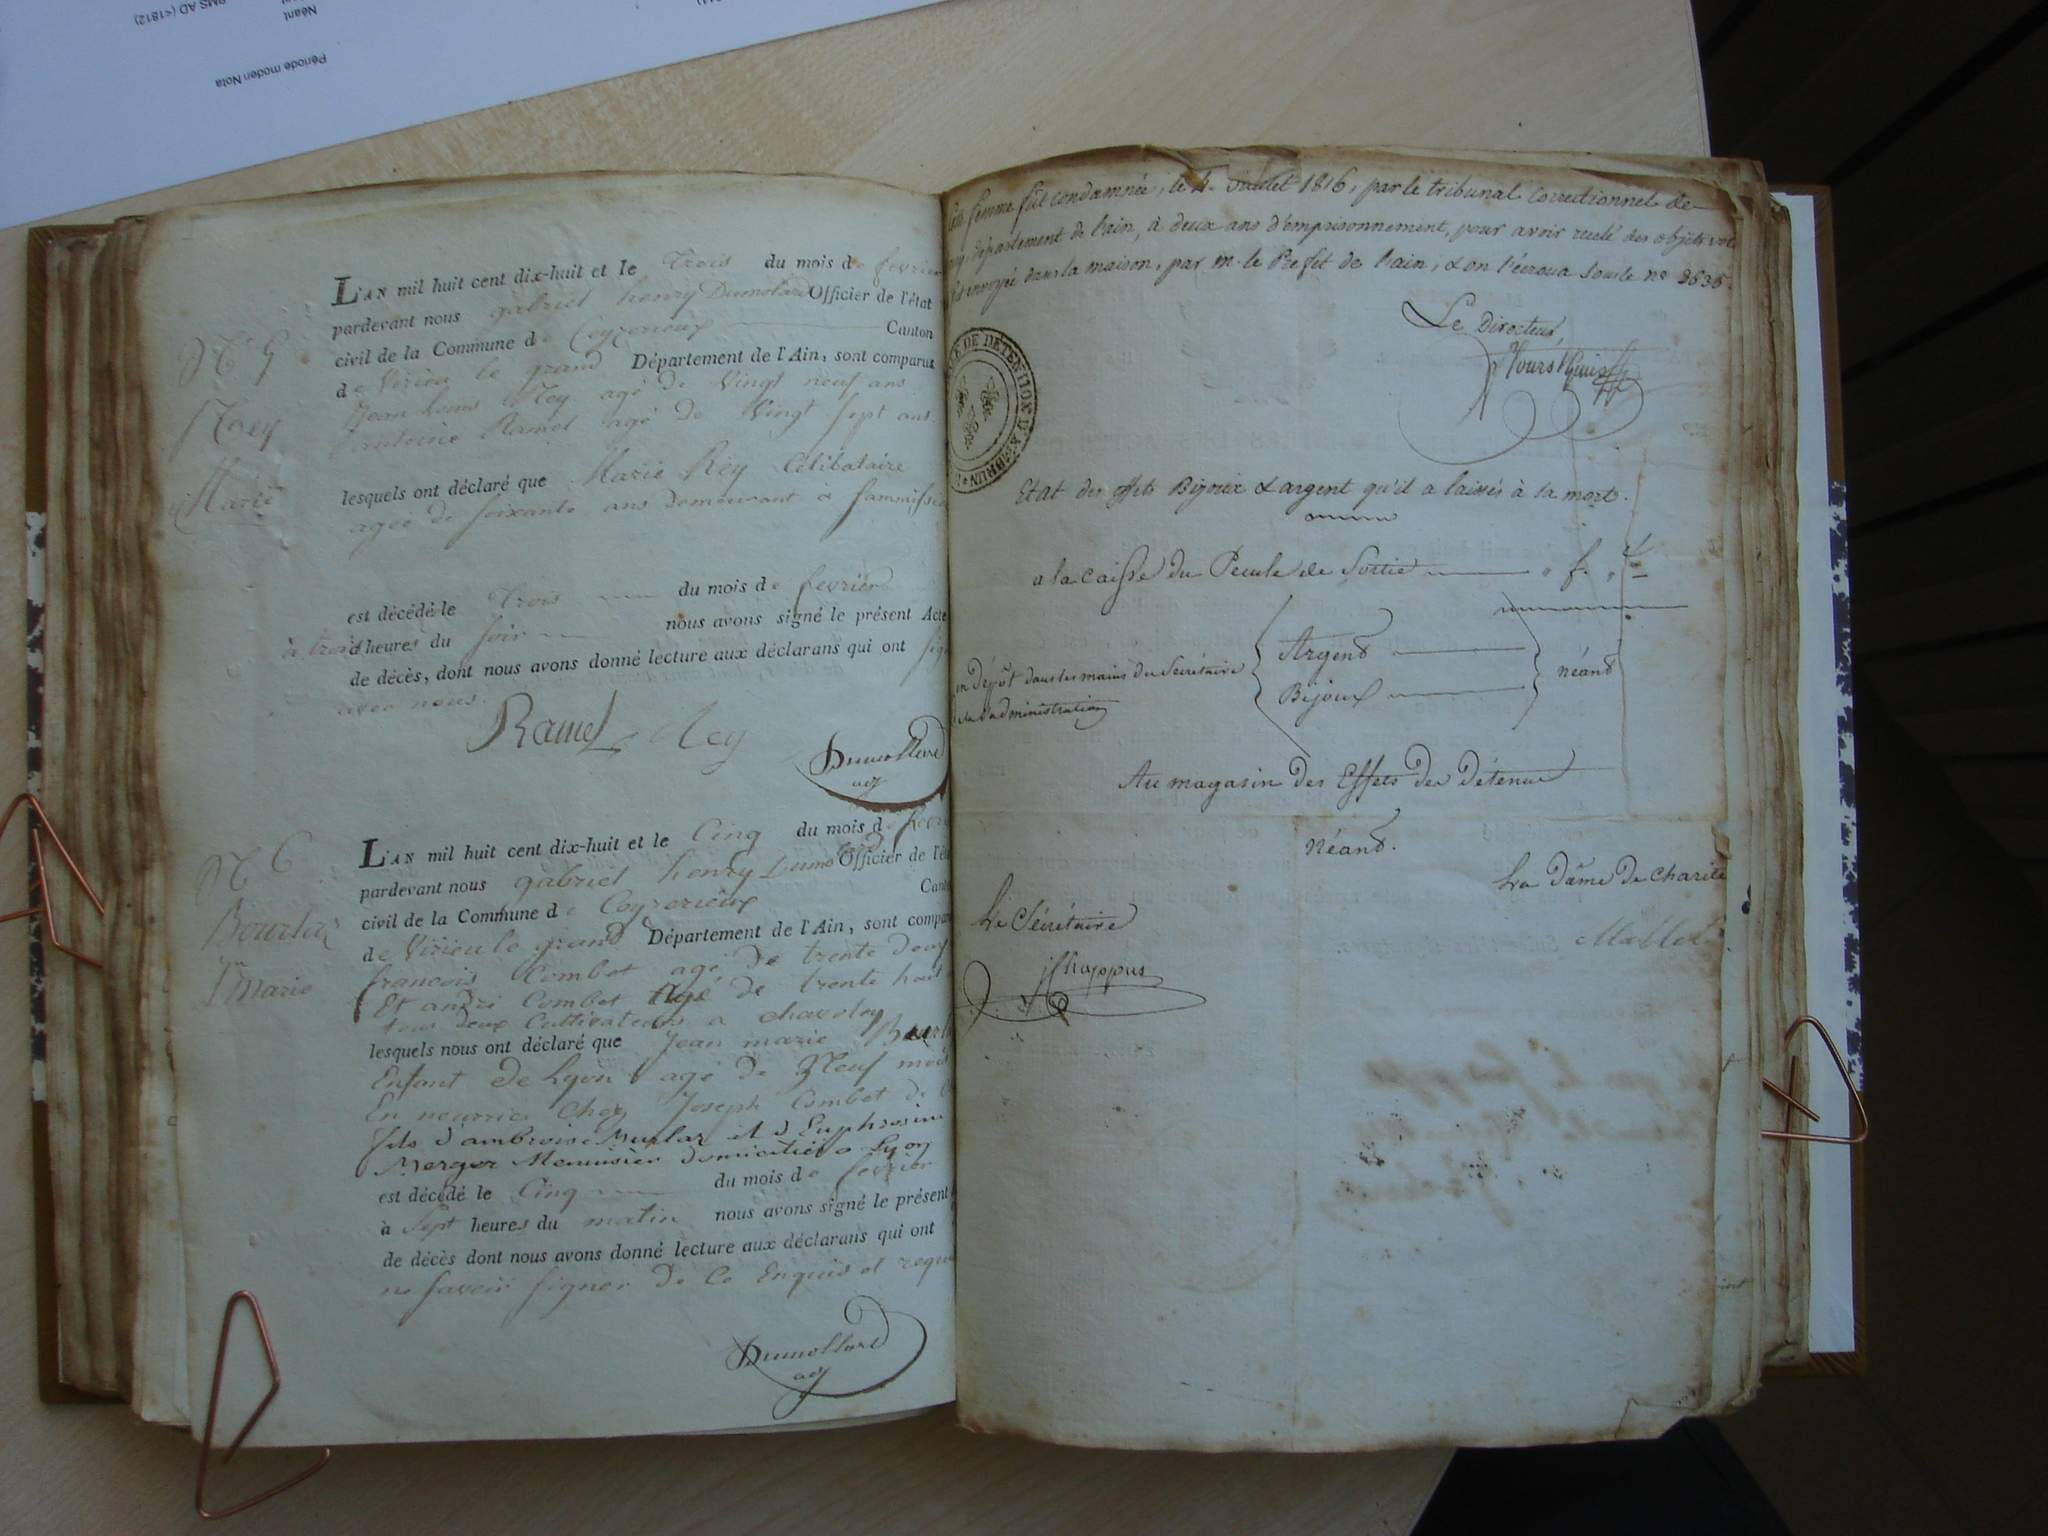 Période moden Nota
Néant
BMS AD (<1812)
L'AN mil huit cent dix-huit et le trois du mois de fevrier
pardevant nous gabriel henry Dumolard Officier de l'état
civil de la Commune de Ceyzerieux Canton
de Virieu le grand Département de l'Ain, sont comparus
Jean Louis Rey agé de Vingt neuf ans
antoine Ramel agé de Vingt sept ans
lesquels ont déclaré que Marie Rey Celibataire
agée de soixante ans demeurant à
est décédé le trois du mois de fevrier
à trois heures du soir nous avons signé le présent Acte
de décès, dont nous avons donné lecture aux déclarans qui ont
avec nous.
Rey
Marie
Ramel Rey
Dumollard
adj
L'AN mil huit cent dix-huit et le Cinq du mois de
pardevant nous gabriel henry Dumolard Officier de l'ét
civil de la Commune de Ceyzerieux Cant
de Virieu le grand Département de l'Ain, sont compar
francois Combet agé de trente deux
Et andré Combet Agé de trente huit
tous deux Cultivateurs a chavoley
lesquels nous ont déclaré que Jean marie
Enfant de Lyon agé de Neuf mois
En nourrice Chez Joseph Combet de
fils d'ambroise Murlaz et d'Euphrosine
Merger Menuisier domicilié a Lyon
est décédé le Cinq du mois de fevrier
à Sept heures du matin nous avons signé le présent
de décès dont nous avons donné lecture aux déclarans qui ont
ne savoir signer de Ce Enquis et requis
N 6
Bourlaz
Jn marie
Dumollard
adj
femme fût condamnée, le 4 Juillet 1816, par le tribunal correctionnel de
département de l'ain, à deux ans d'emprisonnement, pour avoir recelé des objets vol
envoyée dans la maison, par m. le Prefet de l'ain, & on l'écroua sous le no 2636.
Le Directeur,
DE DÉTENTION D'
Etat des effets Bijoux & argent qu'il a laissés à sa mort.
a la caisse du Pecule de Sortie " f. "
en Dépôt dans les mains du Secrétaire
de l'administration
Argent
Bijoux
néant
Au magasin des Effets des Détenus
Néant.
La dâme de charité
Le Sécrétaire
Chappus